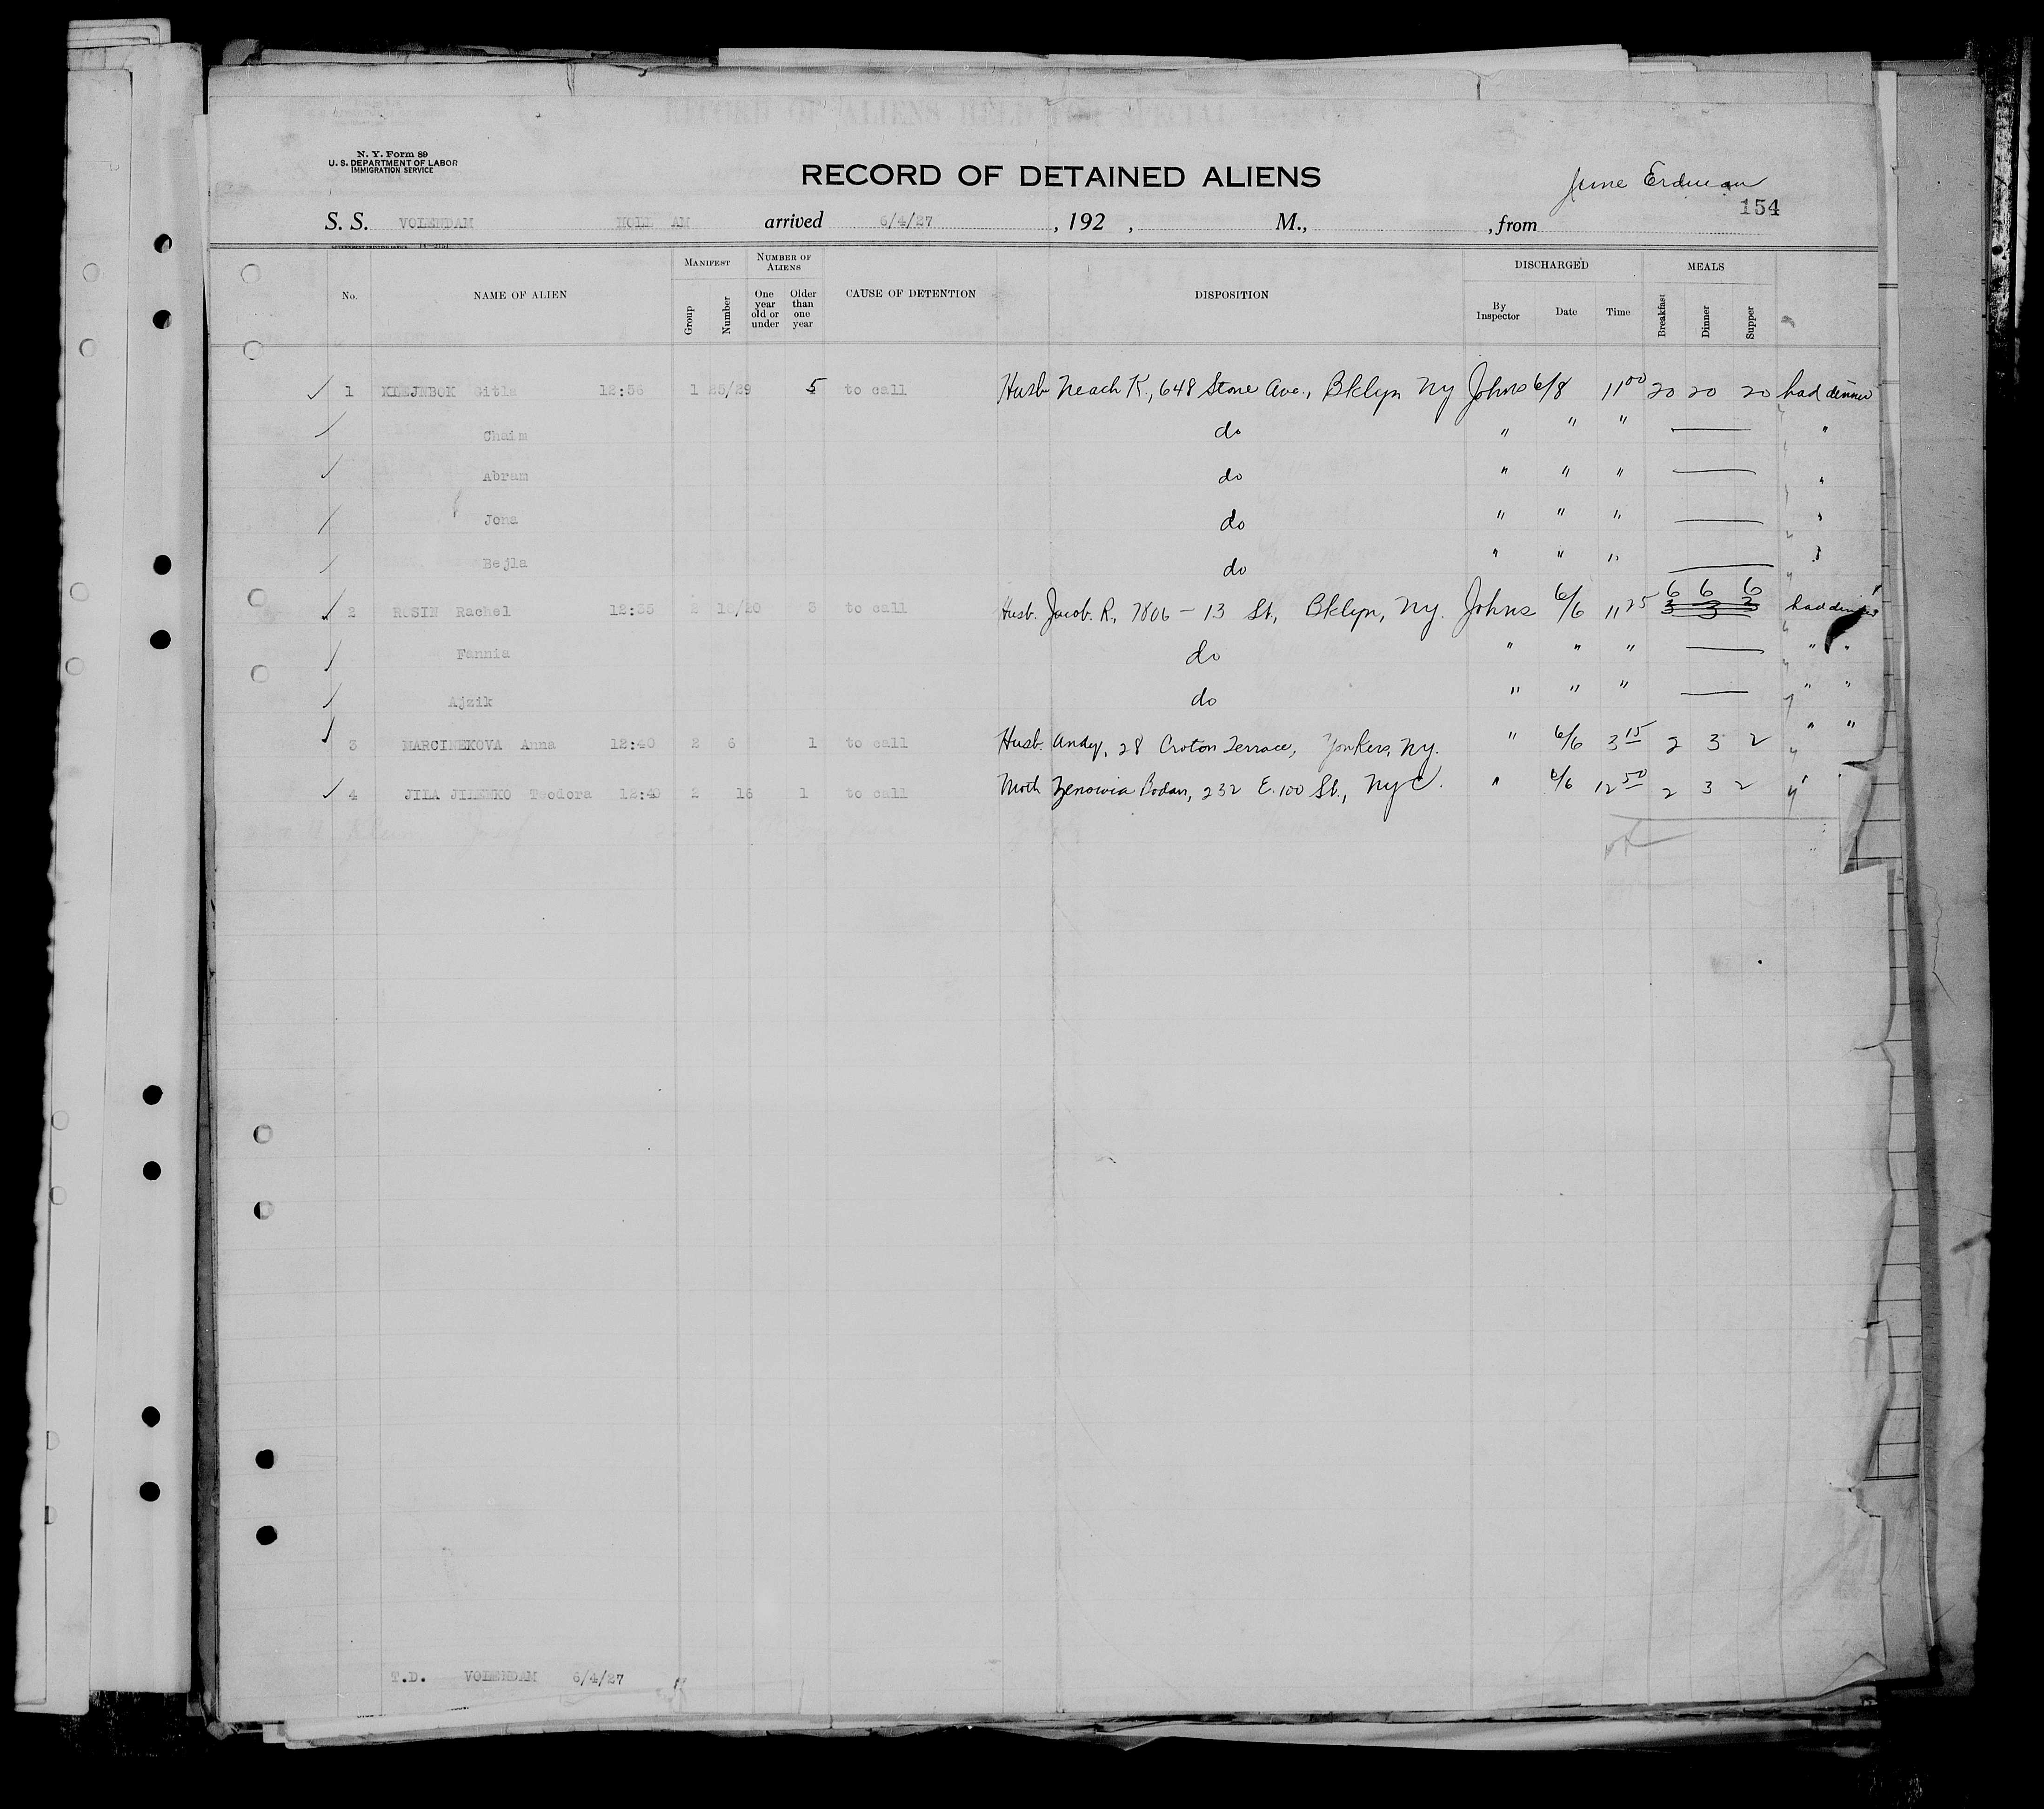 N. Y. Form 89
U. S. DEPARTMENT OF LABOR
IMMIGRATION SERVICE
RECORD OF DETAINED ALIENS
June Erdman
154
S. S. VOLENDAM HOLL AM arrived 6/4/27, 192 , M., , from
No. NAME OF ALIEN MANIFEST Group Number NUMBER OF ALIENS One year old or under Older than one year CAUSE OF DETENTION DISPOSITION DISCHARGED By Inspector Date Time MEALS Breakfast Dinner Supper
1 KLEJNBOK Gitla 12:56 1 25/29 5 to call Husb Neach K., 648 Stone Ave., Bklyn NY Johns 6/8 11 00 20 20 20 had dinner
Chaim do " " " — "
Abram do " " " — "
Jona do " " " — "
Bejla do " " " — "
2 ROSIN Rachel 12:35 2 18/20 3 to call Husb. Jacob R., 7806 - 13 St., Bklyn, Ny. Johns 6/6 11 25 6 6 6 had dinner
Fannia do " " " — " "
Ajzik do " " " — " "
3 MARCINEKOVA Anna 12:40 2 6 1 to call Husb. Andy, 28 Croton Terrace, Yonkers, Ny. " 6/6 3 15 2 3 2 " "
4 JILA JILENKO Teodora 12:40 2 16 1 to call Moth Zenowia Bodan, 232 E. 100 St., NyC. " 6/6 12 50 2 3 2
T.D. VOLENDAM 6/4/27